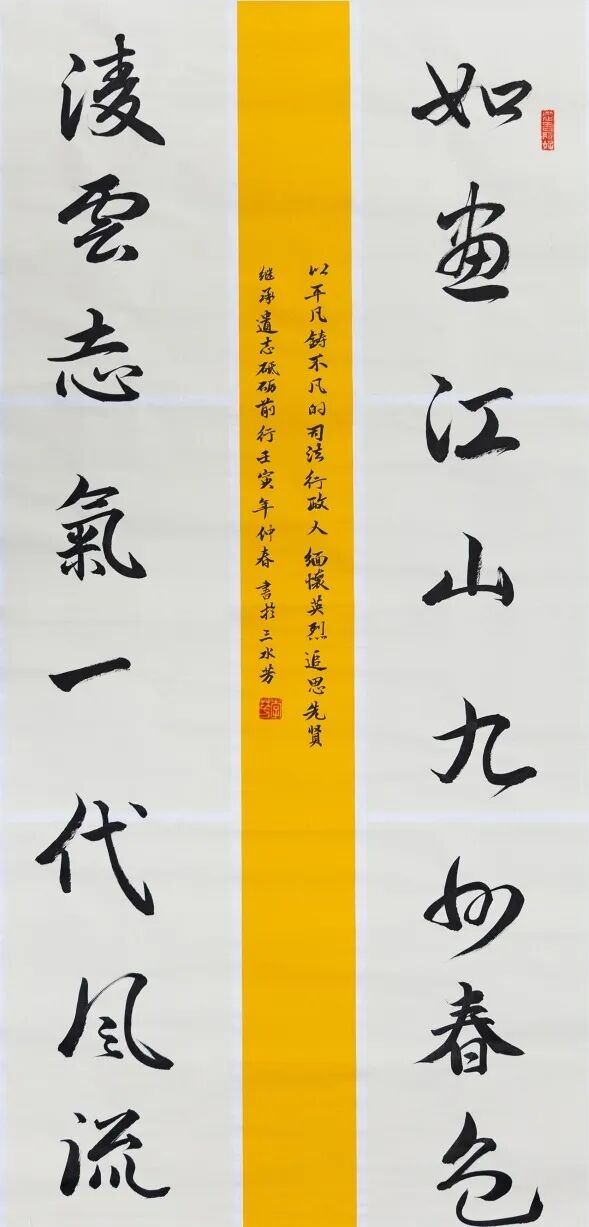 如画江山九州春色
以平凡铸不凡的司法行政人缅懷英烈追思先賢
继承遺志砥砺前行壬寅年仲春書於三水芳
淩雲志氣一代風流